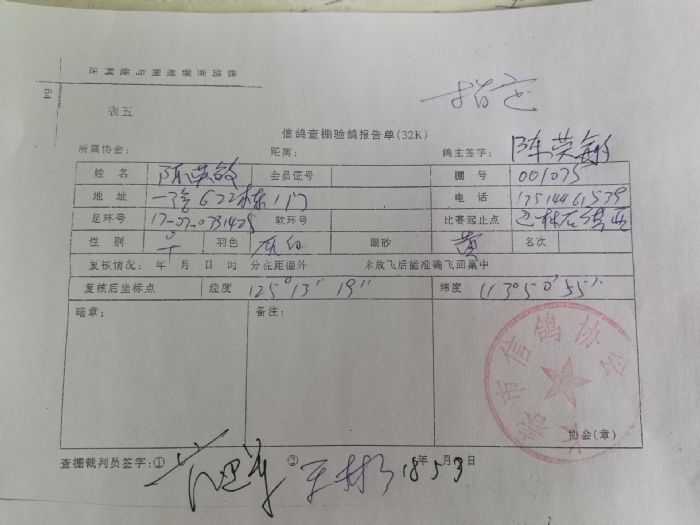 信鸽竞赛规则与裁判法
64
指定
表五
信鸽查棚验鸽报告单(32K)
所属协会： 距离： 鸽主签字：陈荣敏
姓名 陈荣敏 会员证号 棚号 001075
地址 一宿622栋1门 电话
足环号 软环号 比赛起止点
性别 ♀ 羽色 灰白 眼砂 黄 名次
复核情况： 年 月 日 时 分在距棚外 米放飞后能准确飞回巢中
复核后坐标点 经度 125°13″19″ 纬度
暗章： 备注：
市信鸽协会
协会(章)
查棚裁判员签字：① ② 王彬 18年5月3日